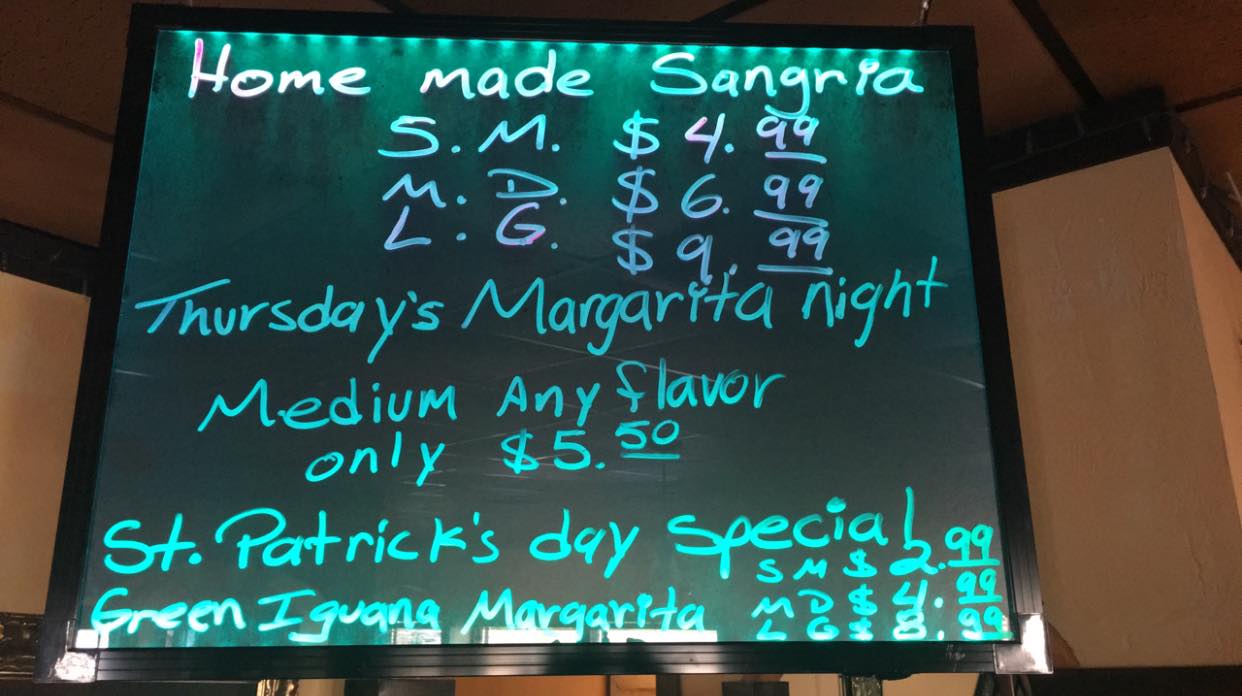 Home made Sangria
S. M. $ 4.99
M. D. $ 6.99
L. G. $ 9.99
Thursday's Margarita night
Medium Any flavor
only $5.50
St. Patrick's day special
SM $ 2.99
Green Iguana Margarita MD $ 4.99
LG $ 8.99